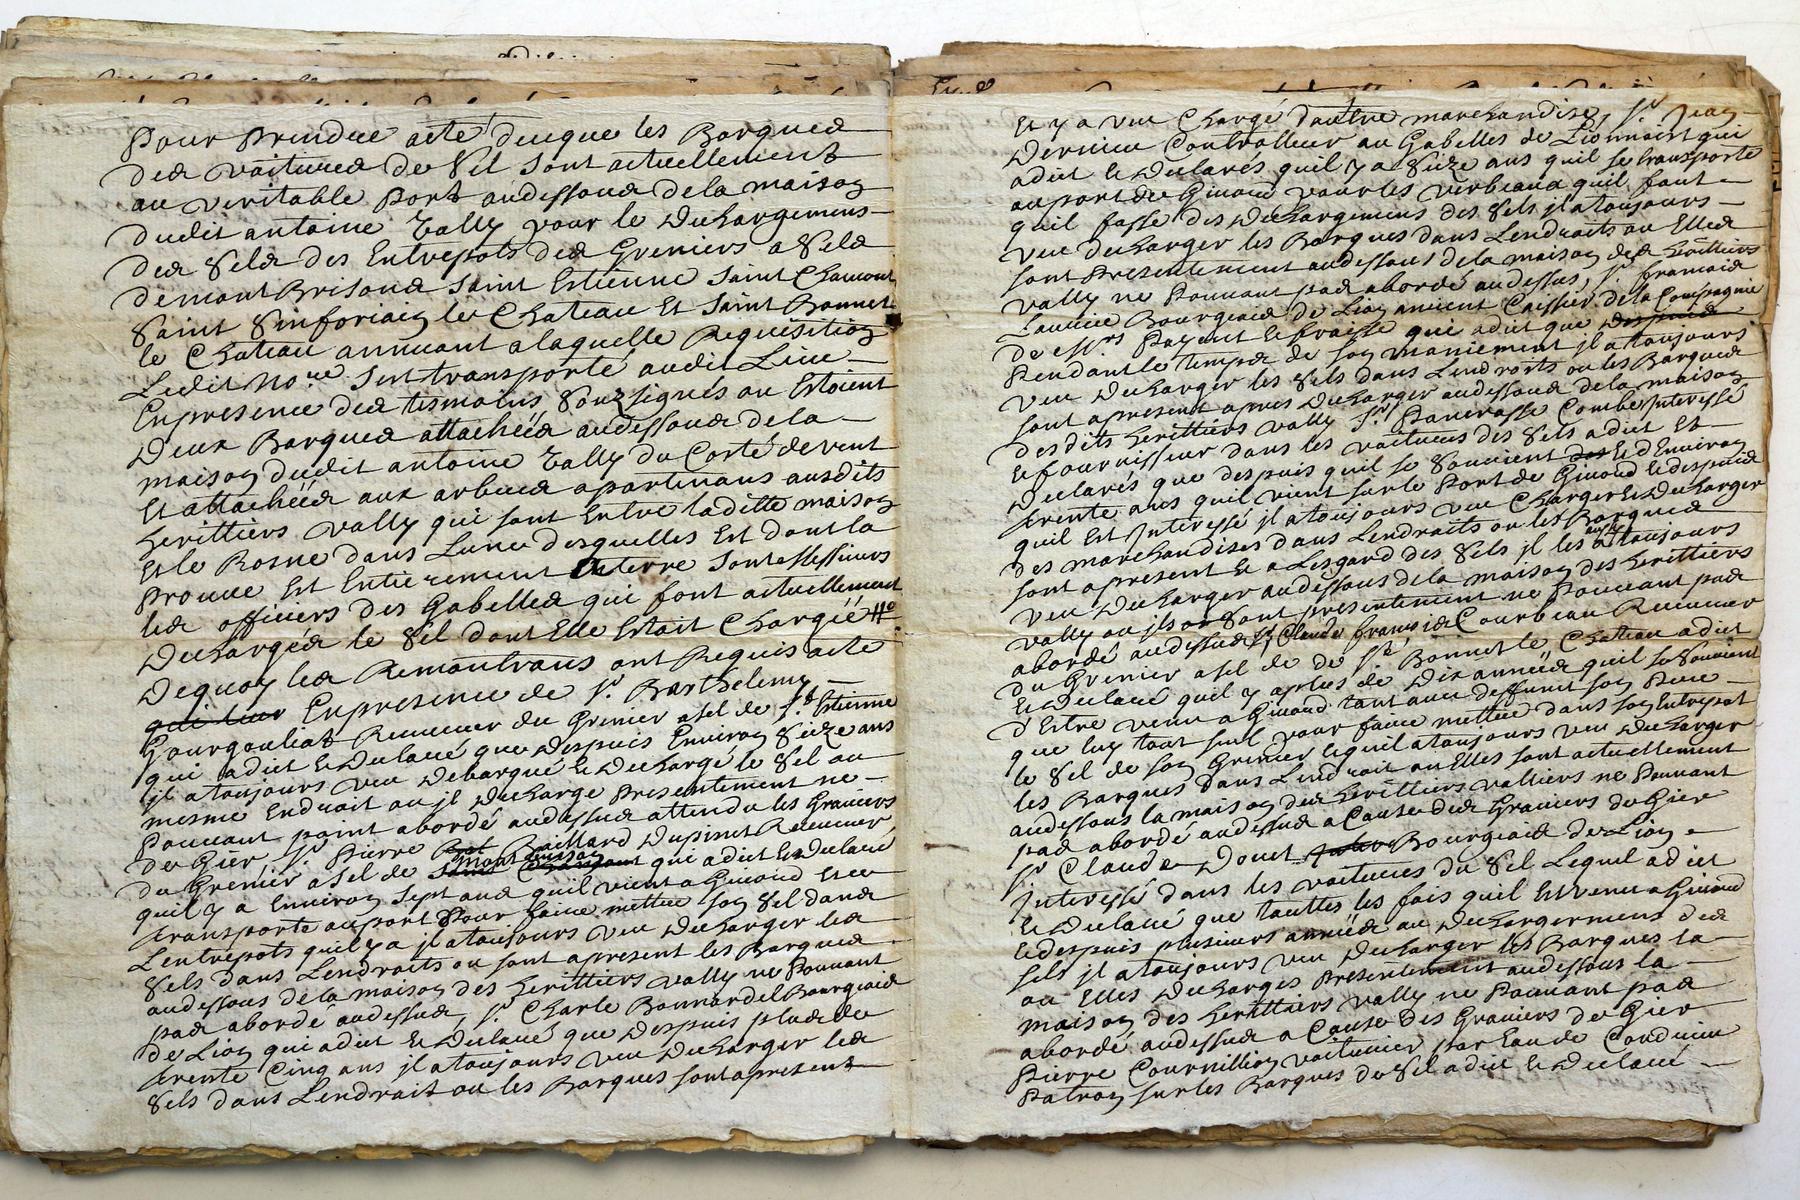 Pour prendre acte dicque les Barques
des voitures de Sel sont actuellement
au veritable Port audessous de la maison
dudit antoine Vally pour le dechargemens
des Sels des Entrepots des Greniers a Sels
de montBrisons Saint Estienne Saint Chamont
Saint Sinforien le Chateau Et Saint Bonnet
le Chateau annuant a laquelle Requisition
Ledit No.re s'est transporté audit Lieu
En presence des tesmoins Souzsignés ou Estoient
Deux Barques attachées audessous de la
maison dudit antoine Vally du Corté de vent
Et attachées aux arbres apartenans ausdits
heritiers Vally qui sont Entre laditte maison
Et le Rosne dans Lune desquelles Est dont la
Proue Est Entierement a terre sont
les officiers des Gabelles qui font actuellement
Decharger le Sel dont Elle Estait Chargée
Dequoy les Remontrans ont Requis acte
En presence de Sr. Barthelemy
Gourgouliat Receveur du Grenier a sel de St. Estienne
qui adict Et Declaré que despuis Environ Seize ans
il a toujours veu Debarqué Et Dechargé le Sel au
mesme Endroit ou il Decharge presentement ne
Pouvant point abordé audessus attendu les Graviers
de Gier, Sr. Pierre Baillard Dupinet Receveur
du Grenier a sel de montbrison qui adict Et Declaré
quil y a Environ Sept ans quil vient a Givord Et ce
transporte au port Pour faire mettre son Sel dans
Lentrepots quil y a il a toujours veu Decharger les
Sels dans Lendroits ou sont apresent les Barques
audessous de la maison des heritiers Vally ne Pouvant
pas abordé audessus, Sr. Charle Bonnardel Bourgeois
de Lion qui adict Et Declaré que Despuis plus de
trente Cinq ans il a toujours veu Decharger les
Sels dans Lendroit ou les Barques sont apresent
Et y a veu Chargé dautre marchandise, Sr. Jean
Dervieu Controlleur au Gabelles de Lionnois qui
adict Et Declarés quil y a Seize ans quil se transporte
au port de Givord pour les verbeaux quil faut
quil fasse des Dechargemens des Sels il a toujours
veu decharger les Barques dans Lendroits ou Elles
sont Presentement audessous de la maison des heritiers
Vally ne Pouvant pas abordé audessus, Sr. francois
Bourgeois de Lion ancient Caissier de la Compagnie
de qui adict que
Pendant le temps de son maniement il a toujours
veu Decharger les Sels dans Lendroits ou les Barques
sont apresent apres Decharger audessous de la maison
desdits heritiers Vally Sr. Pancrasse Combe Interessé
Et fournisseur dans les voitures des Sels adict Et
Declarés que despuis quil se Souvient Et d Environ
trente ans quil vient sur le Port de Givord Et despuis
quil Est Interessé il a toujours veu Charger Et Decharger
des marchandises dans Lendroits ou les Barques
sont apresent Et a Lesgard des Sels il les a aussy toujours
veu Decharger audessous de la maison des heritiers
Vally ou ils sont presentement ne Pouvant pas
abordé audessus, Sr. Claude francois Courbeau Receveur
du Grenier a sel de St. Bonnet le Chateau adict
Et Declaré quil y a plus de Dix années quil se Souvient
d Estre venu a Givord tant avec deffunt son Pere
que luy tout seul pour faire mettre dans son Entrepot
le Sel de son Grenier Et quil a toujours veu Decharger
les Barques dans Lendroit ou Elles sont actuellement
audessous la maison des heritiers Valliers ne Pouvant
pas abordé audessus a Cause des Graviers de Gier
Sr. Claude Donet Bourgeois de Lion
Interessé dans les voitures du Sel Lequel adict
Et Declaré que touttes les fois quil Est venu a Givord
Et despuis plusieurs années au Dechargement des
Sels il a toujours veu Decharger les Barques la
ou Elles Decharges presentement audessous la
maison des heritiers Vally ne Pouvant pas
abordé audessus a Cause des Graviers de Gier
Pierre Cournillion voiturier par Eau de Condrieu
Patron sur les Barques de Sel adict Et Declaré